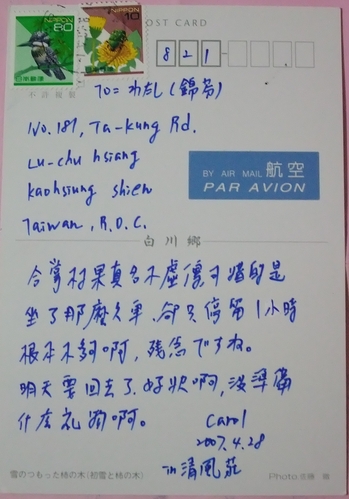 NIPPON 80
NIPPON 10
日本郵便
POST CARD
821
不許複製
TO=
No. 187, Ta-kung Rd.
Lu-chu hsiang
Kaohsiung shien
Taiwan, R.O.C.
BY AIR MAIL 航空
PAR AVION
白川鄉
合掌村果真名不虛傳可惜的是
坐了那麼久車、卻只停留1小時
根本不夠啊，残念ですね。
明天要回去了、好狀啊，沒準備
什麼礼物啊。
Carol
2007.4.28
in 清風荘
雪のつもった柿の木（初雪と柿の木）
Photo